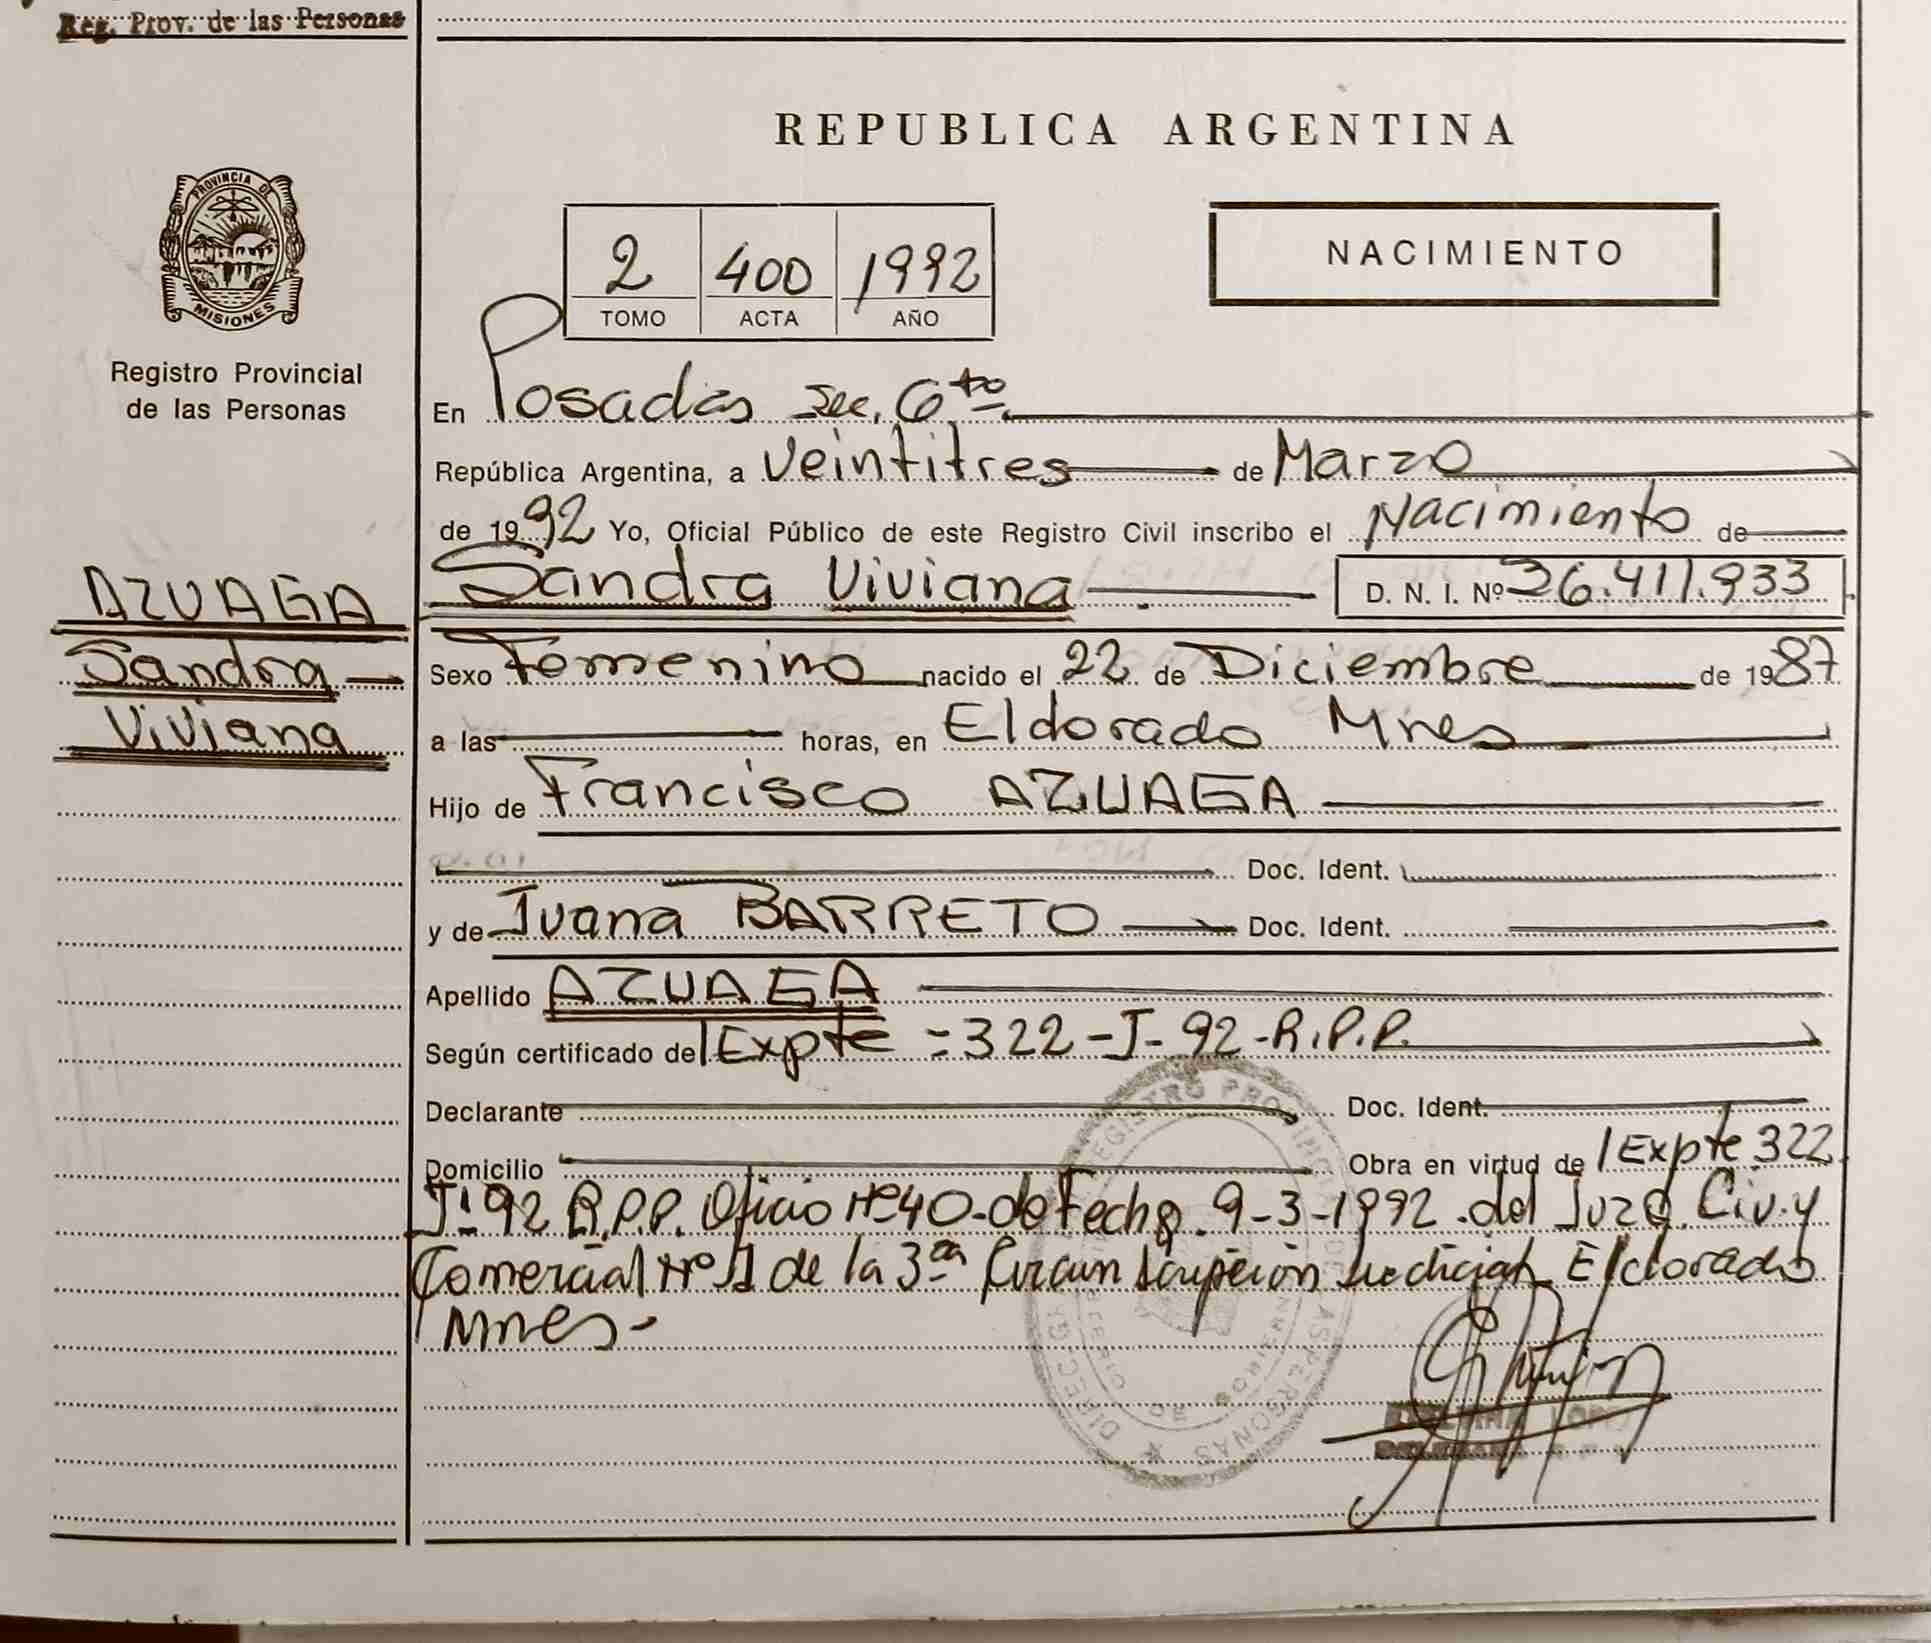 Reg. Prov. de las Personas
REPUBLICA ARGENTINA
PROVINCIA DE
MISIONES
Registro Provincial
de las Personas
2 400 1992
TOMO ACTA AÑO
NACIMIENTO
En Posadas Sec. 6to
República Argentina, a Veintitres de Marzo
de 1992 Yo, Oficial Público de este Registro Civil inscribo el Nacimiento de
AZUAGA
Sandra
Viviana
Sandra Viviana D. N. I. Nº 36.411.933
Sexo Femenino nacido el 22 de Diciembre de 1987
a las horas, en Eldorado Mnes
Hijo de Francisco AZUAGA
Doc. Ident.
y de Juana BARRETO Doc. Ident.
Apellido AZUAGA
Según certificado de Expte = 322-J-92-R.P.P.
Declarante Doc. Ident.
Domicilio Obra en virtud de Expte 322
J-92 R.P.P. Oficio Nº 40-de Fecha 9-3-1992 del Juzg. Civ. y
Comercial Nº 1 de la 3ra Circunscripción Judicial Eldorado
Mnes-
REGISTRO PROVINCIAL DE LAS PERSONAS